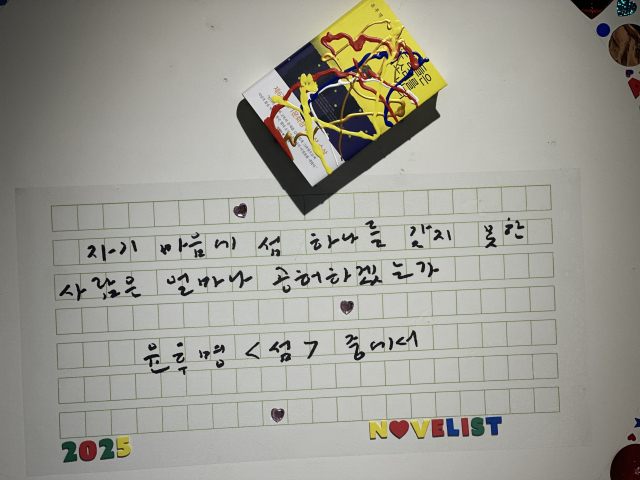 자기 마음에 섬 하나를 갖지 못한
사람은 얼마나 공허하겠는가
윤후명 <섬> 중에서
2025
NOVELIST